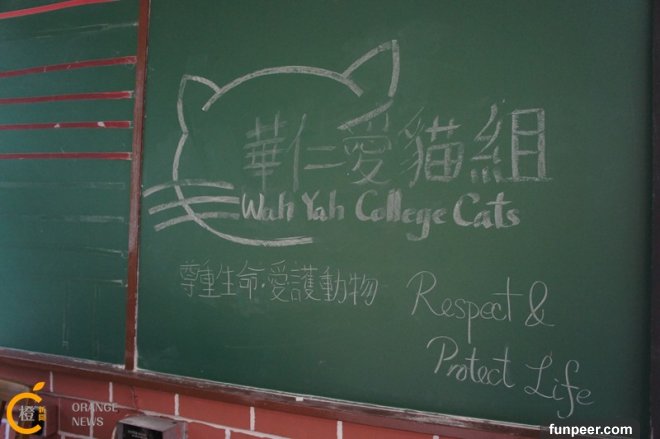 華仁愛貓組
Wah Yah College Cats
尊重生命·愛護動物
Respect &
Protect Life
橙新聞
ORANGE
NEWS
funpeer.com